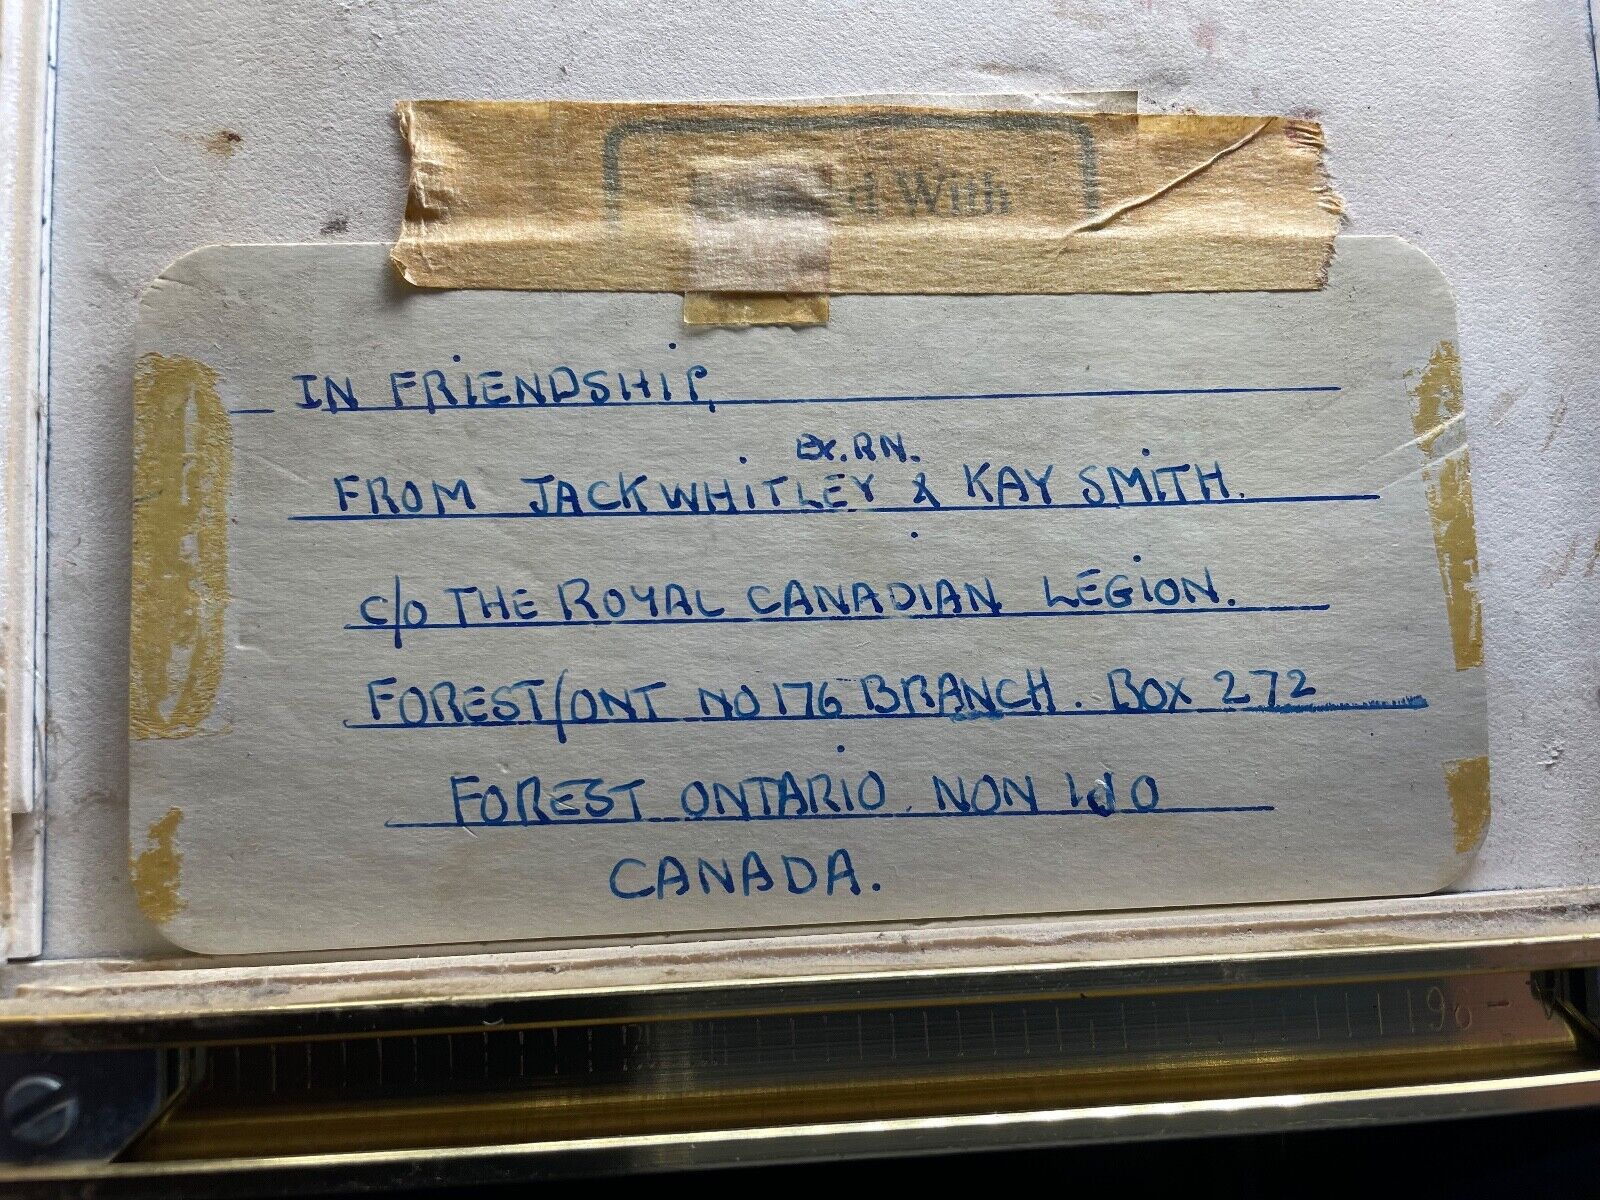 d With
IN FRiENDSHiP,
Ex. RN.
FROM JACK WHiTLEY & KAY SMiTH.
c/o THE ROYAL CANADIAN LEGiON.
FOREST/ONT NO 176 BRANCH. BOX 272
FOREST ONTARiO. NON 1J0
CANADA.
196-A